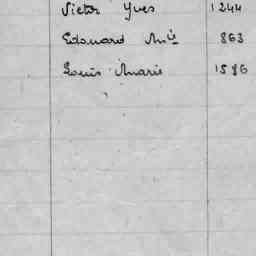 Victor Yves 1244
Edouard Mie 863
Louis Marie 1586